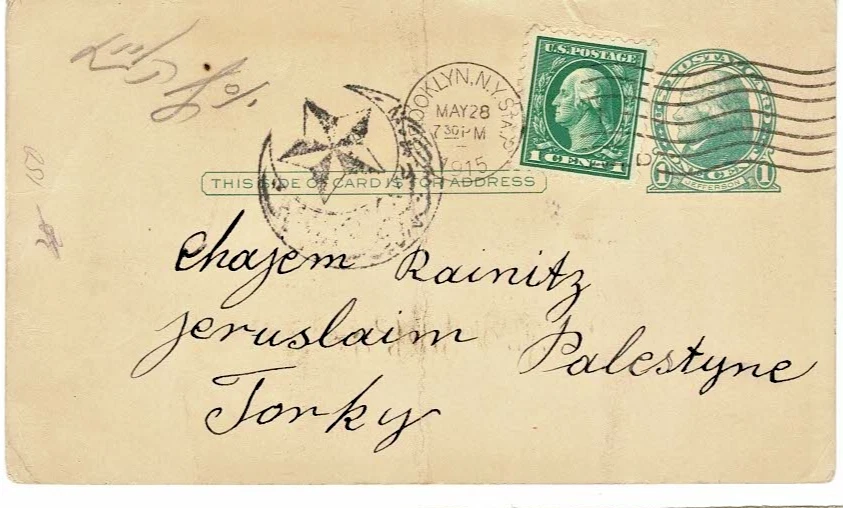 U.S. POSTAGE
1 CENT 1
POSTAL CARD
BROOKLYN, N.Y. STA.
MAY 28
7 30 PM
1915
THIS SIDE OF CARD IS FOR ADDRESS
1 CENT 1
JEFFERSON
150
Chajem Rainitz
Jeruslaim Palestyne
Torky